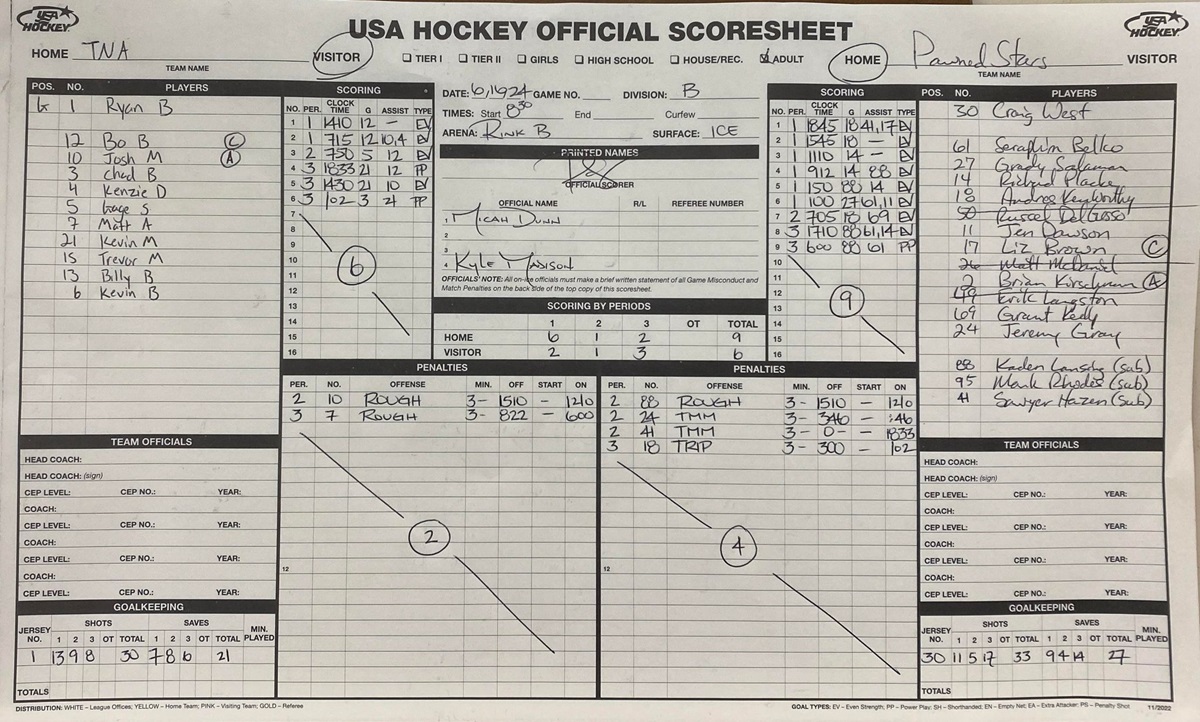 USA HOCKEY
USA HOCKEY OFFICIAL SCORESHEET
USA HOCKEY
HOME TNA VISITOR
TEAM NAME
TIER I TIER II GIRLS HIGH SCHOOL HOUSE/REC. ADULT
HOME Pawned Stars VISITOR
TEAM NAME
POS. NO. PLAYERS
G 1 Ryan B
12 Bo B C
10 Josh M A
3 Chad B
4 Kenzie D
5 Gage S
7 Matt A
21 Kevin M
15 Trevor M
13 Billy B
6 Kevin B
SCORING
NO. PER. CLOCK TIME G ASSIST TYPE
1 1 1410 12 - EV
2 1 715 12 10,4 EV
3 2 750 5 12 EV
4 3 1833 21 12 PP
5 3 1430 21 10 EV
6 3 102 3 21 PP
7
8
9
10
11
12
13
14
15
16
6
DATE: GAME NO. DIVISION: B
TIMES: Start 830 End Curfew
ARENA: RINK B SURFACE: ICE
PRINTED NAMES
OFFICIAL SCORER
OFFICIAL NAME R/L REFEREE NUMBER
1 MICAH DUNN
2
3
4 KYLE MADISON
OFFICIALS' NOTE: All on-ice officials must make a brief written statement of all Game Misconduct and
Match Penalties on the back side of the top copy of this scoresheet.
SCORING BY PERIODS
1 2 3 OT TOTAL
HOME 6 1 2 9
VISITOR 2 1 3 6
SCORING
NO. PER. CLOCK TIME G ASSIST TYPE
1 1 1845 18 41,17 EV
2 1 1545 18 - EV
3 1 1110 14 - EV
4 1 912 14 88 EV
5 1 150 88 14 EV
6 1 100 27 61,11 EV
7 2 705 18 69 EV
8 3 1710 88 61,14 EV
9 3 600 88 61 PP
10
11
12
13
14
15
16
9
POS. NO. PLAYERS
30 Craig West
61 Seraphim Bellco
27 Grady
14 Richard
18 Andrea Kenworthy
50 Russel DelGosso
11 Jen Dawson
17 Liz Brown C
26 Matt McDaniel
2 Brian A
49 Erik Langston
69 Grant Kelly
24 Jeremy Gray
88 Kaden (sub)
95 Mark Rhodes (sub)
41 Sawyer Hazen (sub)
PENALTIES
PER. NO. OFFENSE MIN. OFF START ON
2 10 ROUGH 3- 1510 - 1210
3 7 ROUGH 3- 822 - 600
12
2
PENALTIES
PER. NO. OFFENSE MIN. OFF START ON
2 88 ROUGH 3- 1510 - 1210
2 24 TMM 3- 346 - :46
2 41 TMM 3- 0- - 1833
3 18 TRIP 3- 300 - 102
12
4
TEAM OFFICIALS
HEAD COACH:
HEAD COACH: (sign)
CEP LEVEL: CEP NO.: YEAR:
COACH:
CEP LEVEL: CEP NO.: YEAR:
COACH:
CEP LEVEL: CEP NO.: YEAR:
COACH:
CEP LEVEL: CEP NO.: YEAR:
GOALKEEPING
JERSEY NO. SHOTS SAVES MIN. PLAYED
1 2 3 OT TOTAL 1 2 3 OT TOTAL
1 13 9 8 30 7 8 6 21
TOTALS
TEAM OFFICIALS
HEAD COACH:
HEAD COACH: (sign)
CEP LEVEL: CEP NO.: YEAR:
COACH:
CEP LEVEL: CEP NO.: YEAR:
COACH:
CEP LEVEL: CEP NO.: YEAR:
COACH:
CEP LEVEL: CEP NO.: YEAR:
GOALKEEPING
JERSEY NO. SHOTS SAVES MIN. PLAYED
1 2 3 OT TOTAL 1 2 3 OT TOTAL
30 11 5 17 33 9 4 14 27
TOTALS
DISTRIBUTION: WHITE – League Offices; YELLOW – Home Team; PINK – Visiting Team; GOLD – Referee
GOAL TYPES: EV – Even Strength; PP – Power Play; SH – Shorthanded; EN – Empty Net; EA – Extra Attacker; PS – Penalty Shot 11/2022